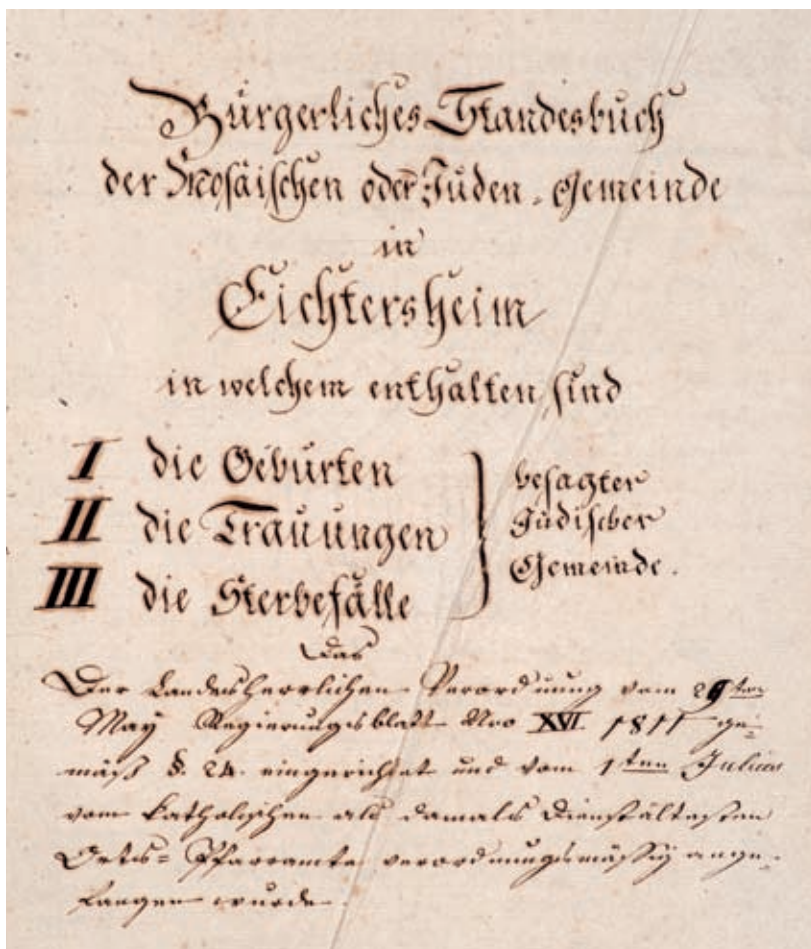 Bürgerliches Standesbuch
der Mosäischen oder Juden-Gemeinde
in
Eichtersheim
in welchem enthalten sind
I die Geburten
II die Trauungen
III die Sterbefälle
besagter
Jüdischer
Gemeinde.
Das
Der Landesherrlichen Verordnung vom 29ten
May Regierungsblatt Nro XVI. 1811 ge-
mäß §. 24. eingerichtet und vom 1ten Julius
vom katholischen als damals dienstältesten
Orts= Pfarramte verordnungsmässig ange-
fangen wurde.